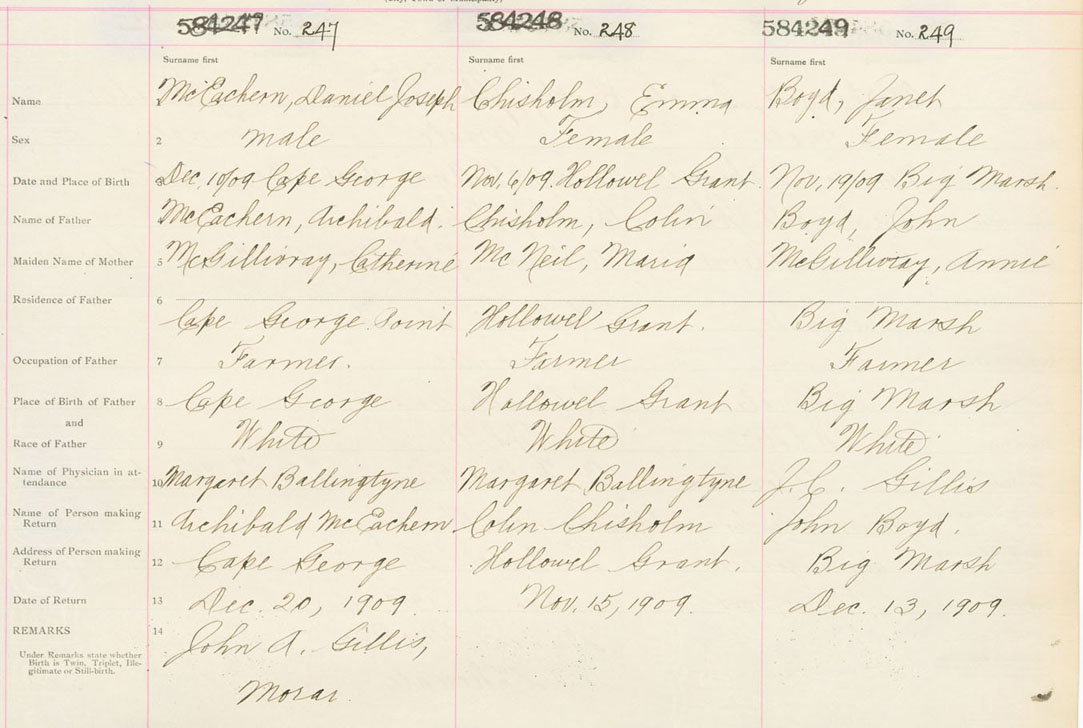 584247 No. 247 584248 No. 248 584249 No. 249
Surname first Surname first Surname first
Name McEachern, Daniel Joseph Chisholm, Emma Boyd, Janet
Sex 2 Male Female Female
Date and Place of Birth 3 Dec. 10/09 Cape George Nov. 6/09. Hollowel Grant. Nov. 19/09 Big Marsh.
Name of Father McEachern, Archibald. Chisholm, Colin Boyd, John
Maiden Name of Mother 5 McGillivray, Catherine Mc Neil, Maria McGillivray, Annie
Residence of Father 6
Cape George Point Hollowel Grant. Big Marsh
Occupation of Father 7 Farmer. Farmer Farmer
Place of Birth of Father 8 Cape George Hollowel Grant Big Marsh
and
Race of Father 9 White White White
Name of Physician in at-
tendance 10 Margaret Ballingtyne Margaret Ballingtyne J.C. Gillis
Name of Person making
Return 11 Archibald McEachern Colin Chisholm John Boyd.
Address of Person making
Return 12 Cape George Hollowel Grant. Big Marsh
Date of Return 13 Dec. 20, 1909. Nov. 15, 1909. Dec. 13, 1909.
REMARKS 14 John A. Gillis,
Under Remarks state whether
Birth is Twin, Triplet, Ille-
gitimate or Still-birth.
Morar.